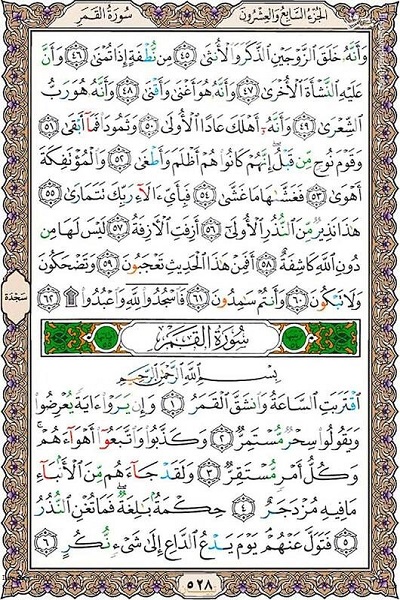 الجزء السابع والعشرون
سورة القمر
وَأَنَّهُ خَلَقَ الزَّوْجَيْنِ الذَّكَرَ وَالْأُنثَىٰ ﴿٤٥﴾ مِن نُّطْفَةٍ إِذَا تُمْنَىٰ ﴿٤٦﴾ وَأَنَّ
عَلَيْهِ النَّشْأَةَ الْأُخْرَىٰ ﴿٤٧﴾ وَأَنَّهُ هُوَ أَغْنَىٰ وَأَقْنَىٰ ﴿٤٨﴾ وَأَنَّهُ هُوَ رَبُّ
الشِّعْرَىٰ ﴿٤٩﴾ وَأَنَّهُ أَهْلَكَ عَادًا الْأُولَىٰ ﴿٥٠﴾ وَثَمُودَ فَمَا أَبْقَىٰ ﴿٥١﴾
وَقَوْمَ نُوحٍ مِّن قَبْلُ إِنَّهُمْ كَانُوا هُمْ أَظْلَمَ وَأَطْغَىٰ ﴿٥٢﴾ وَالْمُؤْتَفِكَةَ
أَهْوَىٰ ﴿٥٣﴾ فَغَشَّاهَا مَا غَشَّىٰ ﴿٥٤﴾ فَبِأَيِّ آلَاءِ رَبِّكَ تَتَمَارَىٰ ﴿٥٥﴾
هَٰذَا نَذِيرٌ مِّنَ النُّذُرِ الْأُولَىٰ ﴿٥٦﴾ أَزِفَتِ الْآزِفَةُ ﴿٥٧﴾ لَيْسَ لَهَا مِن
دُونِ اللَّهِ كَاشِفَةٌ ﴿٥٨﴾ أَفَمِنْ هَٰذَا الْحَدِيثِ تَعْجَبُونَ ﴿٥٩﴾ وَتَضْحَكُونَ
وَلَا تَبْكُونَ ﴿٦٠﴾ وَأَنتُمْ سَامِدُونَ ﴿٦١﴾ فَاسْجُدُوا لِلَّهِ وَاعْبُدُوا ۩ ﴿٦٢﴾
سجدة
سورة القمر
بِسْمِ اللَّهِ الرَّحْمَٰنِ الرَّحِيمِ
اقْتَرَبَتِ السَّاعَةُ وَانشَقَّ الْقَمَرُ ﴿١﴾ وَإِن يَرَوْا آيَةً يُعْرِضُوا
وَيَقُولُوا سِحْرٌ مُّسْتَمِرٌّ ﴿٢﴾ وَكَذَّبُوا وَاتَّبَعُوا أَهْوَاءَهُمْ ۚ
وَكُلُّ أَمْرٍ مُّسْتَقِرٌّ ﴿٣﴾ وَلَقَدْ جَاءَهُم مِّنَ الْأَنبَاءِ
مَا فِيهِ مُزْدَجَرٌ ﴿٤﴾ حِكْمَةٌ بَالِغَةٌ ۖ فَمَا تُغْنِ النُّذُرُ
﴿٥﴾ فَتَوَلَّ عَنْهُمْ يَوْمَ يَدْعُ الدَّاعِ إِلَىٰ شَيْءٍ نُّكُرٍ ﴿٦﴾
٥٢٨